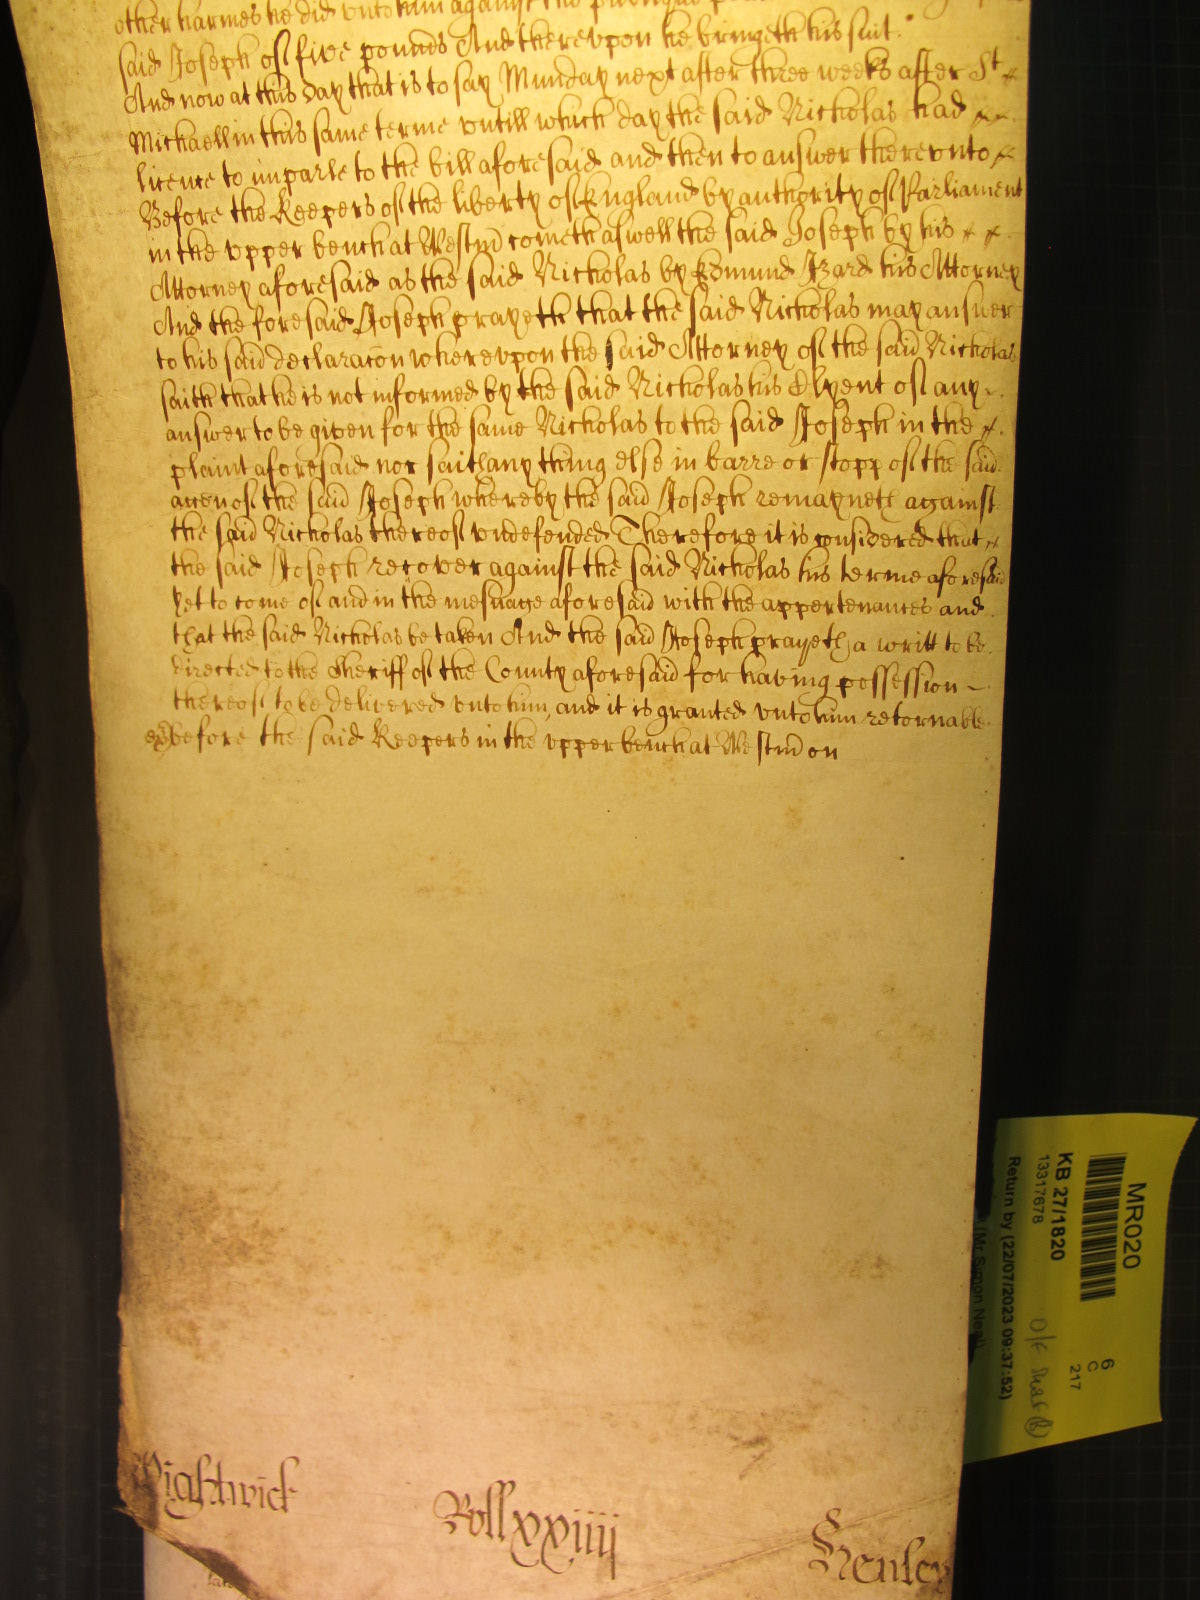 other harmes he did unto him against the publique
said Joseph of five pounds And thereupon he bringeth his suit.
And now at this day that is to say Munday next after three weeks after St
Michaell in this same terme untill which day the said Nicholas had
licence to imparle to the bill aforesaid and then to answer thereunto
Before the Keepers of the liberty of England by authority of Parliament
in the upper bench at Westmr cometh aswell the said Joseph by his
Attorney aforesaid as the said Nicholas by Edmund Izard his Attorney
And the foresaid Joseph prayeth that the said Nicholas may answer
to his said declaracon whereupon the said Attorney of the said Nicholas
saith that he is not informed by the said Nicholas his Clyent of any
answer to be given for the same Nicholas to the said Joseph in the
plaint aforesaid nor saith any thing else in barre or stopp of the said
accon of the said Joseph whereby the said Joseph remayneth against
the said Nicholas thereof undefended Therefore it is considered that
the said Joseph recover against the said Nicholas his terme aforesaid
yet to come of and in the mesuage aforesaid with the appertenances and
that the said Nicholas be taken And the said Joseph prayeth a writt to be
directed to the Sheriff of the County aforesaid for having possession
thereof to be delivered unto him, and it is granted unto him retornable
before the said Keepers in the upper bench at Westmr on
Wightwick
Roll xxiiij
Henley
MR020
KB 27/1820
13317678
Return by (22/07/2023 09:37:52)
(Mr Simon Neal)
6
C
217